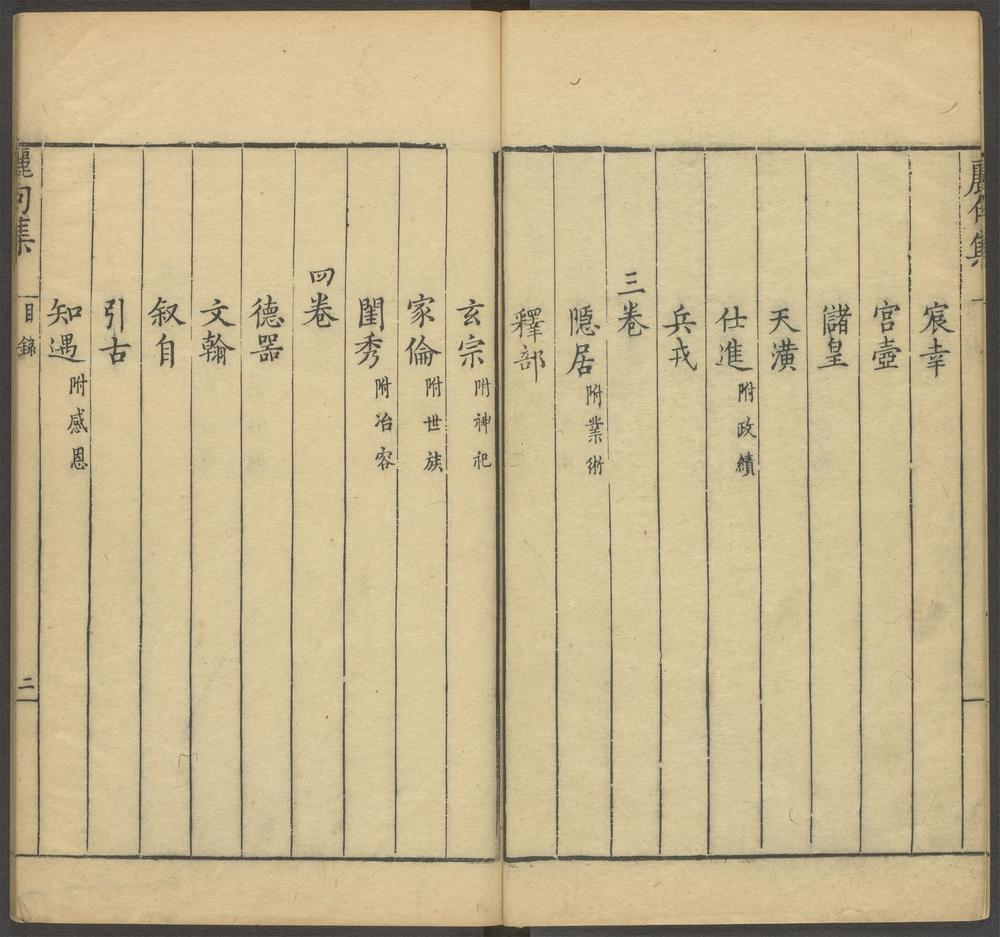 麗句集
宸幸
宮壺
儲皇
天潢
仕進附政績
兵戎
三卷
隱居附業術
釋部
玄宗附神祀
家倫附世族
閨秀附冶容
四卷
德器
文翰
叙自
引古
知遇附感恩
麗句集 目錄 二